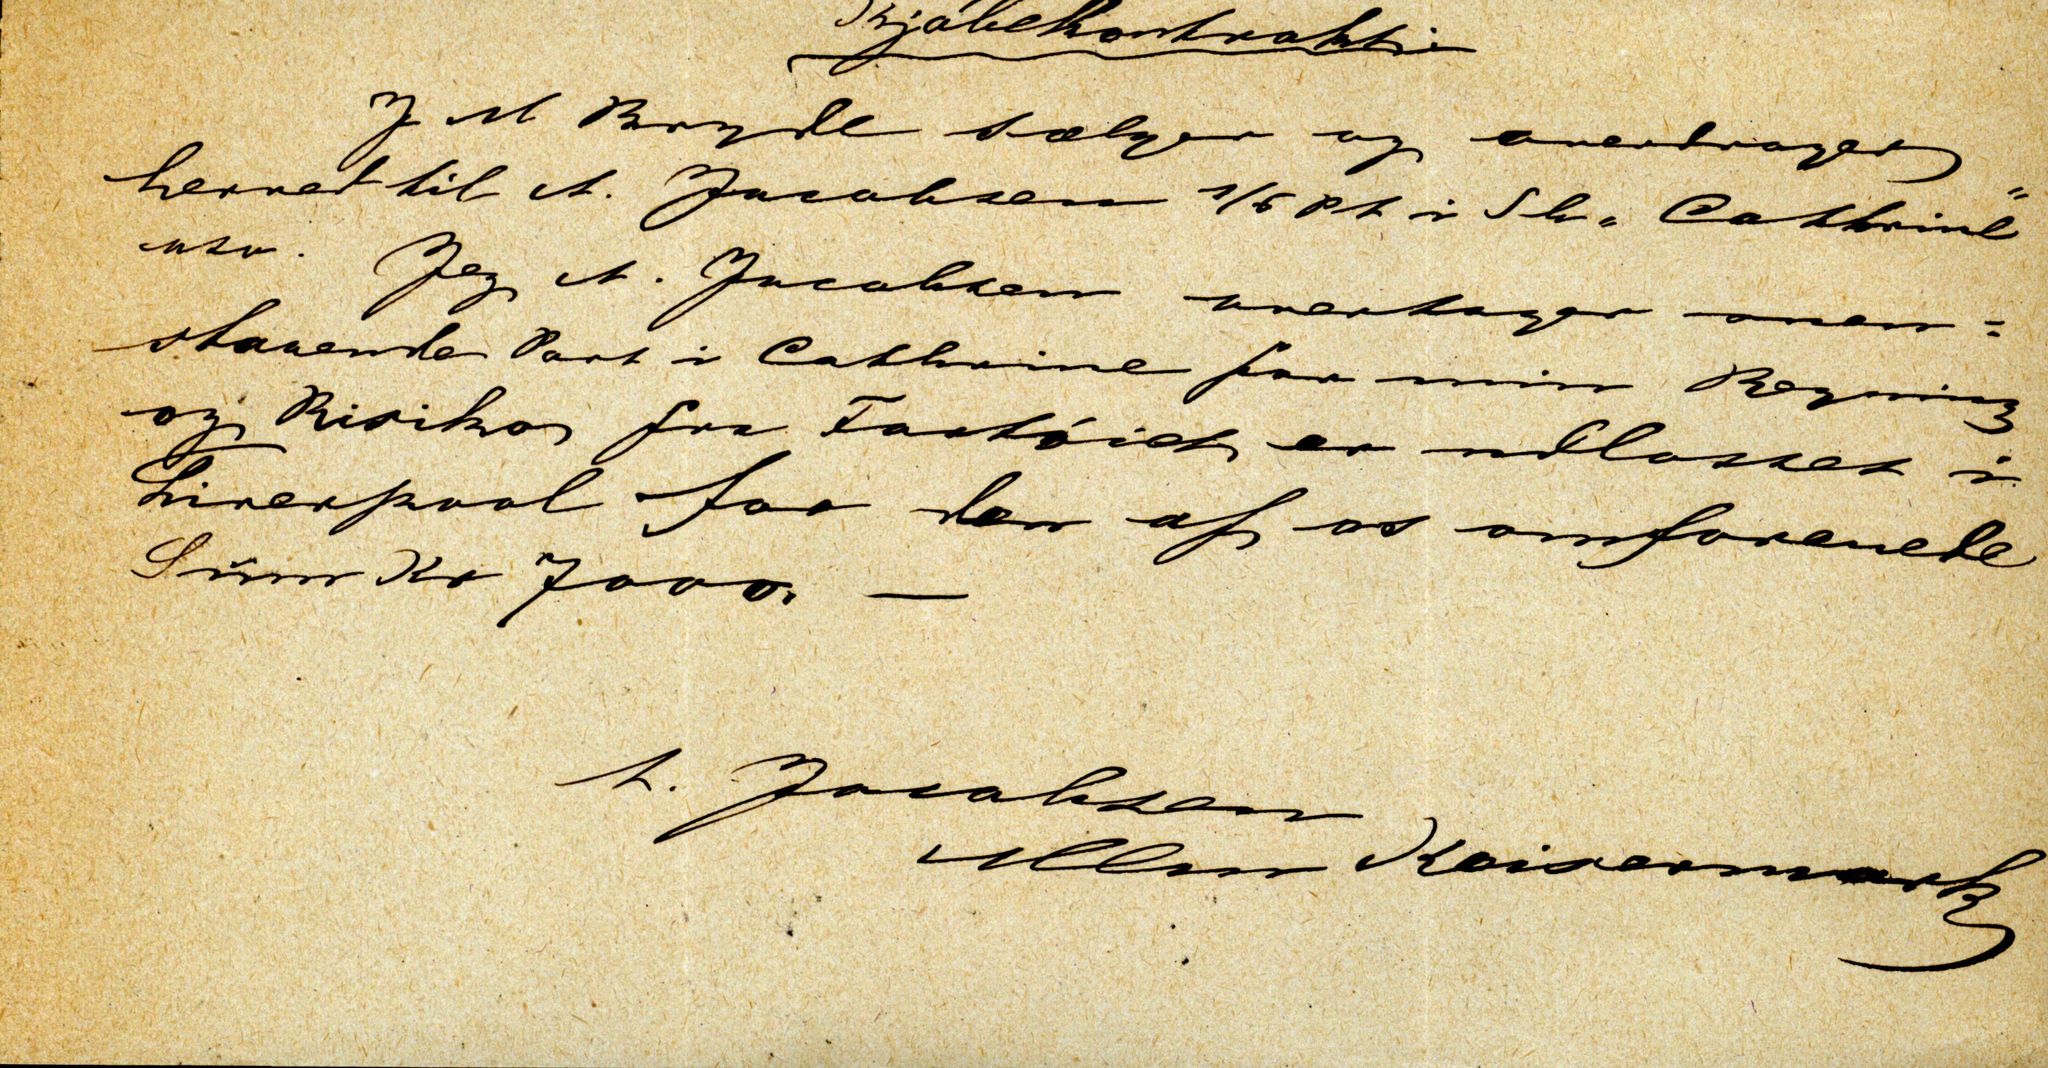 Kjøbekontrakt
J M Bryde sælger og overdrager
herved til A. Jacobsen 1/6 Pt i Sk „Cathrine"
usv. Jeg A. Jacobsen overtager oven=
staaende Part i Cathrine for min Regning
og Risiko fra Fartøiet er udlosset i
Liverpool for den af os omforenede
Sum Kr 7000. —
A. Jacobsen
Keisermark